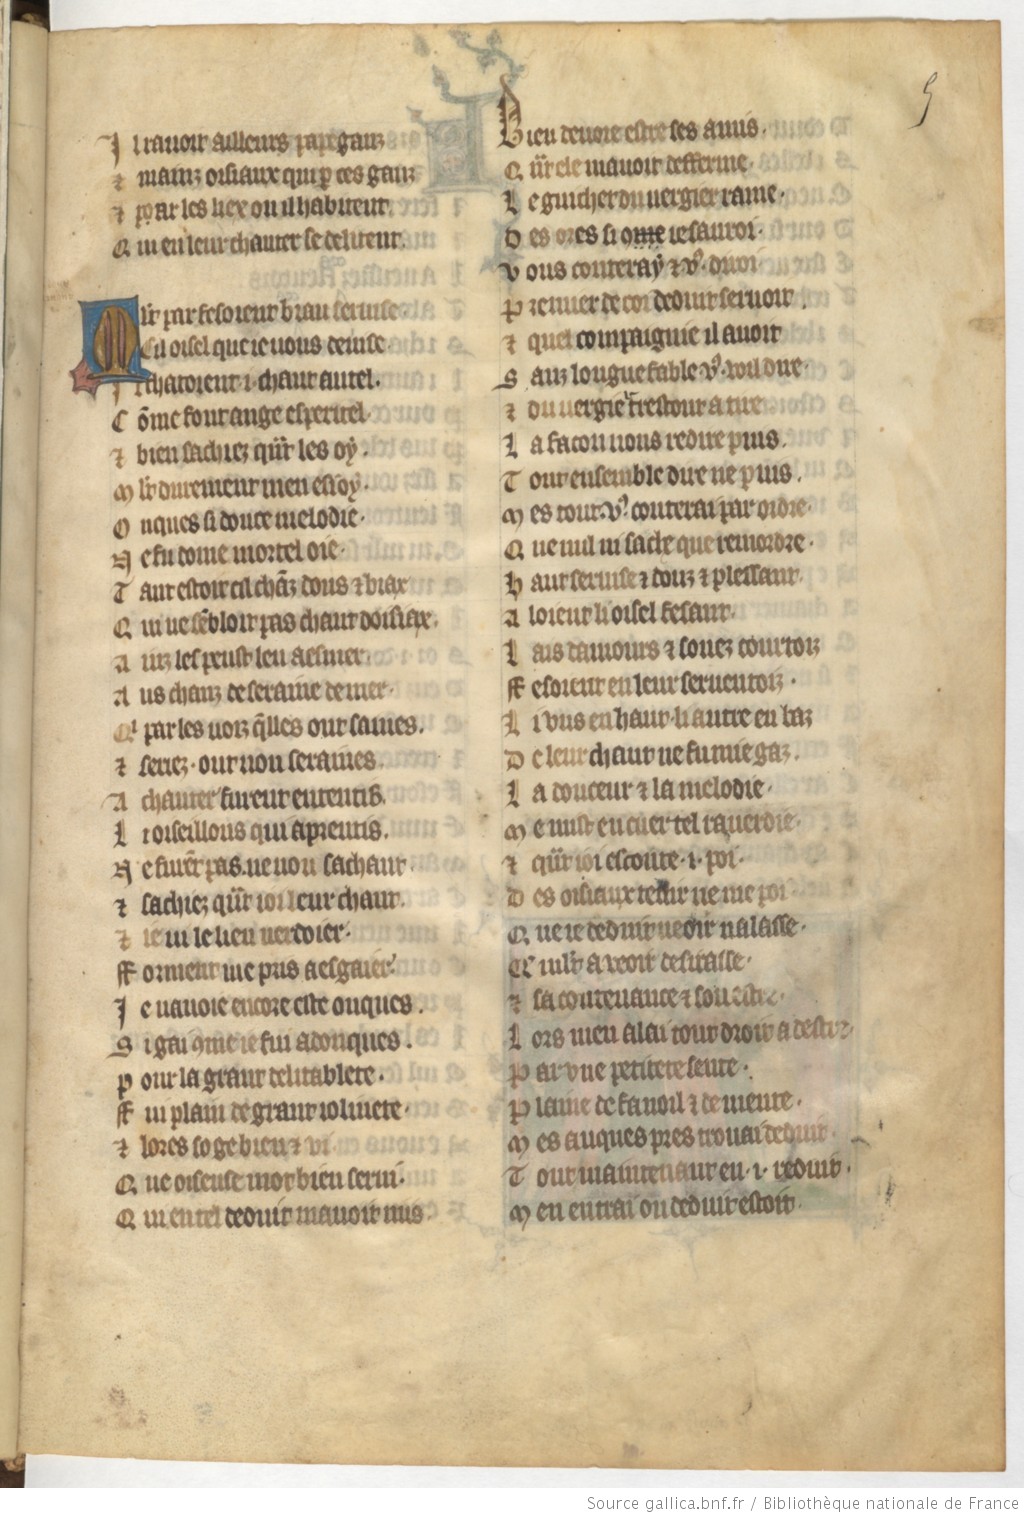 5
Il ravoit ailleurs papegauz
⁊ mainz oisiaux qui p̱ ces gauz
⁊ par les liex ou il habitent
Qui en leur chanter se delitent.
Mlt̄ par fesoient biau seruise
Cil oisel que ie vous deuise
Il chātoient .i. chant autel.
Cōme font ange esperitel.
⁊ bien sachiez qn̄t les oÿ.
Mlt̄ durement men esioÿ.
Onques si douce melodie.
Ne fu dome mortel oie.
Tant estoit cil chāz douz ⁊ biax
Qui ne sēbloit pas chant doisiax.
Ainz les peust len aesmer.
Aus chanz de seraine de mer.
Qi par les uoiz q̄lles ont saines.
⁊ series. ont non seraines.
A chanter furent ententis.
Li oiseillons qui aprentis.
Ne furēt pas. ne non sachant.
⁊ sachiez qn̄t ioi leur chant.
⁊ ie ui le lieu verdoier.
fforment me pris a esgaier.
Ie nauoie encore este onques.
Si gai 9me ie fui adonques.
Pour la grant delitablete.
ffui plain de grant ioliuete.
⁊ lores so ge bien ⁊ vi
Que oiseuse mot bien serui.
Qui en tel deduit mauoit mis.
Bien deuoie estre ses amis.
Qn̄t ele mauoit desferme.
Le guichet du uergier rame.
Des ores si 9me ie sauroi.
Vous conteraÿ ⁊ vˢ. diroi
Premier de coi deduit seruoit.
⁊ quel compaignie il auoit
Sanz longue fable vˢ. voil dire.
⁊ du uergier trestout a tire
La facon uous redire puis.
Tout ensemble dire ne puis.
Mes tout. vˢ. conterai par ordre.
Que nul ni sache que remordre.
Haut seruise ⁊ douz ⁊ plessant.
Aloient li oisel fesant.
Lais damours ⁊ sonez courtoiz
ffesoient en leur seruentoiz.
Li vns en haut. li autre en baz
De leur chant ne fu mie gaz.
La douceur ⁊ la melodie.
Me mist en cuer tel rauerdie.
⁊ qn̄t ioi escoute .i. poi.
Des oisiaux tenir ne me poi
Que ie deduit ueoir nalasse.
Qr mlt̄ a veoir desirasse.
⁊ sa contenance ⁊ son estre.
Lors men alai tout droit a destre.
Par vne petitete sente.
Plaine de fanoil ⁊ de mente.
Mes auques pres trouai deduit.
Tout maintenant en .i. reduit.
Men entrai ou deduit estoit.
Source gallica.bnf.fr / Bibliothèque nationale de France